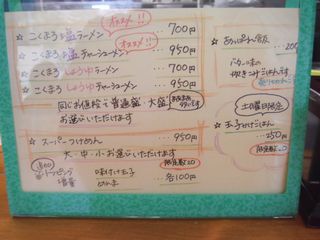 オススメ!!
☆ こくまろ塩ラーメン 700円
オススメ!!
☆ こくまろ塩チャーシューメン 950円
☆ こくまろしょうゆラーメン 700円
☆ こくまろしょうゆチャーシューメン 950円
同じお値段で普通盛・大盛
お選びいただけます
☆ スーパーつけめん 950円
大・中・小お選びいただけます
トッピング 味付け玉子
各100円
☆ あっぱれ飯 200
バター味の
土曜日限定
☆ 玉子かけごはん
250円